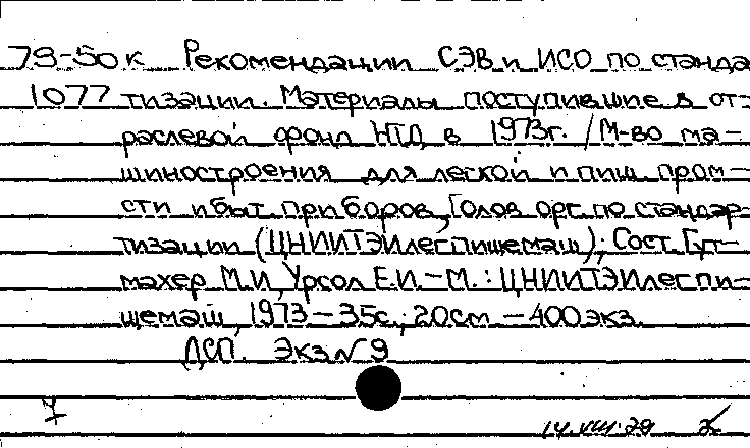 79-50к Рекомендации СЭВ и ИСО по станда
1077 тизации. Материалы поступившие в от-
раслевой фонд НТД в 1973г. /М-во ма-
шиностроения для легкой и пищ. пром-
сти и быт. приборов, Голов. орг. по стандар-
тизации (ЦНИИТЭИлегпищемаш); Сост. Гут-
махер М.И., Урсол Е.И. - М.: ЦНИИТЭИлегпи-
щемаш, 1973 - 35с.; 20см - 400 экз.
ДСП. Экз N 9
14.VIII.79